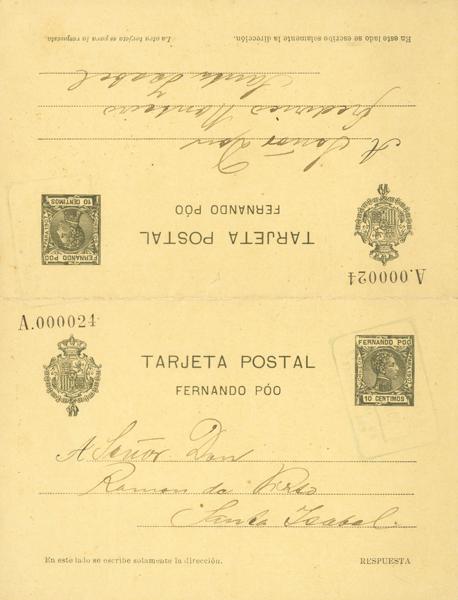 En este lado se escribo solamente la dirección.
La otra tarjeta es para la respuesta
A Señor Don
Federico Monteiro
Santa Isabel
TARJETA POSTAL
FERNANDO PÓO
FERNANDO PÓO
10 CENTIMOS
A.000024
A.000024
TARJETA POSTAL
FERNANDO PÓO
FERNANDO PÓO
10 CENTIMOS
A Señor Don
Ramon da
Santa Isabel.
En este lado se escribe solamente la dirección.
RESPUESTA